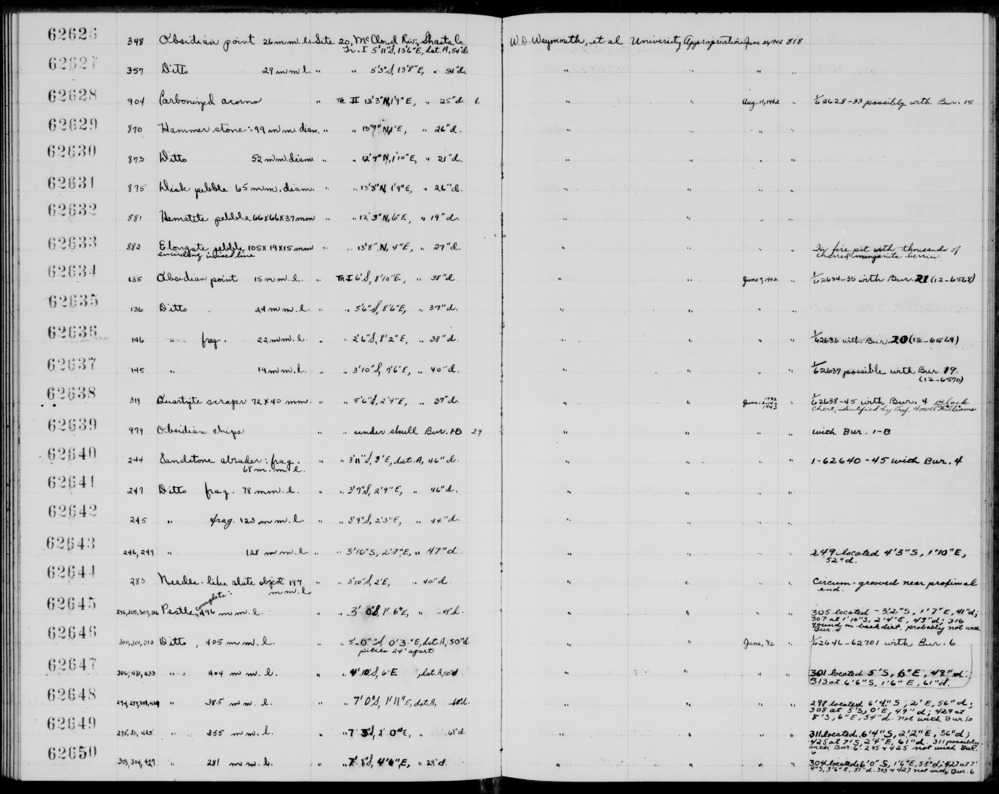 62626 348 Obsidian point 26 mm. l. Site 20, McCloud Riv., Shasta Co. W.D. Weymouth, et al University Appropriation 818
Tr. I 5'11"S, 13'6"E, dat. A, 54"d.
62627 357 Ditto 29 mm. l. " " 5'3"S, 13'8"E, " " " " "
62628 904 Carbonized acorns " Tr. II 13'3"N, 1'9"E, " 25"d. 6 " " Aug. 11, 1942 " 1/62628-33 possibly with Bur. 15
62629 870 Hammer stone: 99 mm diam. " " " 26"d. " " " "
62630 873 Ditto 52 mm. diam " " 12'7"N, 1'10"E, " 21"d. " " " "
62631 875 Disk pebble 65 mm. diam. " " 13'3"N, 1'9"E, " 26"d. " " " "
62632 881 Hematite pebble 66x66x37 mm " " 12'3"N, 6"E, " 19"d. " " " "
62633 882 Elongate pebble 105x19x15 mm " " 13'8"N, 4"E, " 27"d. " " " " In fire pit with thousands of
encircling incised line charred manzanita berries
62634 135 Obsidian point 15 mm. l. " Tr. I 6'S, 8'10"E, " 38"d. " " June 9, 1942 " 1/62634-35 with Bur. 21 (12-6568)
62635 136 Ditto 24 mm. l. " " 5'6"S, 8'6"E, " 37"d. " " " "
62636 146 " frag. 22 mm. l. " " 2'6"S, 8'2"E, " 38"d. " " " " 1/62636 with Bur. 20 (12-6569)
62637 145 " 19 mm. l. " " 3'10"S, 9'6"E, " 40"d. " " " " 1/62637 possible with Bur. 19
(12-6570)
62638 319 Quartzite scraper 72x40 mm. " " 5'6"S, 2'4"E, " 37"d. " " 1/62638-45 with Bur. 4
chert, identified by Prof. Howel Williams
62639 979 Obsidian chips " " under skull Bur. 1-B 29 " " " " with Bur. 1-B
62640 244 Sandstone abrader: frag. " " 3'11"S, 3'E, dat. A, 46"d. " " " " 1-62640-45 with Bur. 4
68 mm. l.
62641 247 Ditto frag. 78 mm. l. " " 3'7"S, 2'9"E, " 46"d. " " " "
62642 245 " frag. 123 mm. l. " " 3'9"S, 2'3"E, " 44"d. " " " "
62643 246, 249 " 128 mm. l. " " 3'10"S, 2'7"E, " 47"d. " " " " 249 located 4'3"S, 1'10"E,
52"d.
62644 283 Needle-like slate object 197 " " 3'10"S, 2'E, " 40"d. " " " " Circum-grooved near proximal
mm. l. end.
62645 Pestle, complete: 496 mm. l. " " 3' 1'6"E, " " " " " 305 located - 3'2"S, 1'7"E, 41"d;
307 at 1'10"S, 2'4"E, 43"d; 316
found in back dirt, probably not with
Bur. 4
62646 Ditto 405 mm. l. " " 5'-0"S 0'3"E, dat. A, 50"d " " June, 42 " 1/62646-62701 with Bur. 6
pieces 24" apart
62647 " " 404 mm. l. " " 4'10"S, 6"E " " " " 301 located 5'S, 6"E, 49"d.
313 at 6'6"S, 1'6"E, 61"d.
62648 " 385 mm. l. " " 7'0"S, 1'11"E, dat. A, " " " " 298 located 6'4"S, 2'E, 56"d;
308 at 5'S, 0'E, 49"d; 429 at
8'3, 6"E, 54"d. not with Bur. 6
62649 " 355 mm. l. " " 2'0"E, " " " " " 311 located, 6'4"S, 2'2"E, 56"d;
425 at 7'S, 2'4"E, 61"d. 311 possibly
with Bur. 6. 295 & 425 not with Bur.
6
62650 " 281 mm. l. " " 4'6"E, " " " " " 304 located 6'0"S, 1'6"E, 53"d;
303 & 427 not with Bur. 6